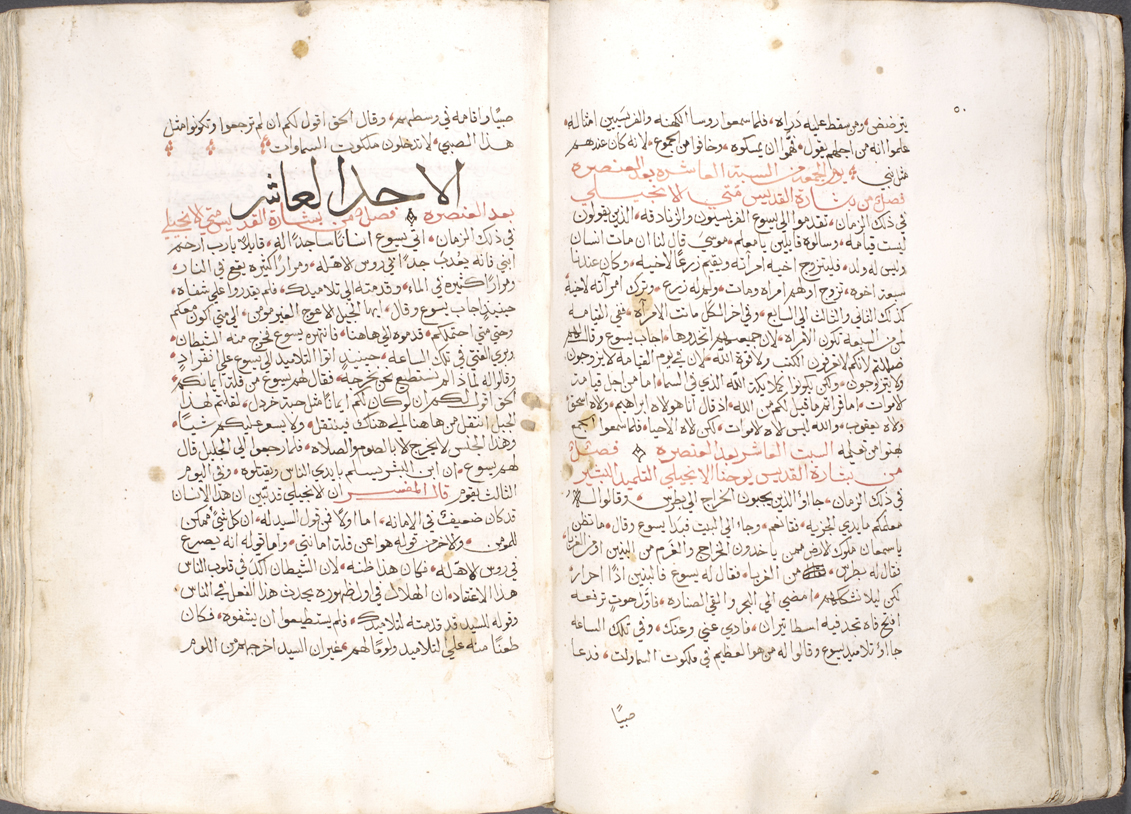 ٥٠
يترضض، ومن سقط عليه ذراه، فلما سمعوا روسا الكهنه والفريسيين امثاله
علموا انه من اجلهم يقول، فهموا ان يمسكوه، وخافوا من الجموع، لانه كان عندهم
مثل نبي، يوم الجمعه من السبة العاشره بعد العنصره
فصل من بشارة القديس متي الانجيلي
في ذلك الزمان، تقدموا الي يسوع الفريسيون والزنادقه، الذين يقولون
ليست قيامه، وسالوه قايلين يا معلم، موسي قال لنا ان مات انسان
وليس له ولد، فليتزوج اخيه امراته ويقيم زرعًا لاخيه، وكان عندنا
سبعة اخوه، تزوج اولهم امراه ومات، ولم يكن له زرع، وترك امراته لاخيه
كذلك الثاني والثالث الي السابع، وفي اخر الكل ماتت الامرأه، ففي القيامه
لمن من السبعه تكون الامراه، لان جميعهم اتخذوها، اجاب يسوع وقال لهم
ضللتم لانكم لا تعرفون الكتب ولا قوة الله، لان في يوم القيامه لا يزوجون
ولا يتزوجون، ولكن يكونوا كملايكة الله الذي في السما، اما من اجل قيامة
الاموات، اما قراتم ما قيل لكم من الله، اذ قال انا هو لاه ابراهيم، ولاه اسحق
ولاه يعقوب، والله ليس لاه لاموات، لكن لاه الاحيا، فلما سمعوا الجمع
بهتوا من تعليمه السبت العاشر بعد العنصره فصل
من بشارة القديس يوحنا الانجيلي التلميد البشير
في ذلك الزمان، جااوا الذين يجبون الخراج الي بطرس، وقالوا له
معلمكم ما يدي الجزيه، فقال نعم، وجاء الي البيت فبدا يسوع وقال، ما تظن
يا سمعان ملوك لارض ممن ياخدون الخراج والغرم من البنين او من الغربا
فقال له بطرس من الغربا، فقال له يسوع فالبنين اذًا احرار،
لكن ليلا نشككهم، امضي الي البحر والقي الصناره، فاول حوت ترفعه
افتح فاه تجد فيه اسطاتيران، فادي عني وعنك، وفي تلك الساعه
جااوا تلاميد يسوع وقالوا له من هو العظيم في ملكوت السماوات، فدعا
صبيًا
صبيًا واقامه في وسطهم، وقال الحق اقول لكم ان لم ترجعوا وتكونوا مثل
هذا الصبي، لا تدخلون ملكوت السماوات
الاحد العاشر
بعد العنصره فصل من بشارة القديس متي لانجيلي
في ذلك الزمان، اتي يسوع انسانًا ساجدًا اله، قايلًا يارب ارحم
ابني فانه يعذب جدًا في روس الاهله، ومرارًا كثيره يقع في النار،
ومرارًا كثيره في الماء، وقدمته الي تلاميدك، فلم يقدروا علي شفاه
حينيدٍ اجاب يسوع وقال، ايها الجيل الاعوج الغير مومن، الي متي اكون معكم
وحتي متي احتملكم، قدموه الي هاهنا، فانتهره يسوع فخرج منه الشيطان
وبري الفتي في تلك الساعه، حينيدٍ اتوا التلاميد الي يسوع علي انفرادٍ
وقالوا له لماذا لم نستطيع نحن نخرجه، فقال لهم يسوع من قلة ايمانكم
الحق اقول لكم ان لو كان لكم ايمانًا مثل حبة خردل، لقلتم لهذا
الجبل انتقل من هاهنا الي هناك فينتقل، ولا يعسر عليكم شيئًا
وهذا الجنس لا يخرج الا بالصوم والصلاه، فلما رجعوا الي الجليل قال
لهم يسوع، ان ابن البشر يسلم بايدي الناس ويقتلوه، وفي اليوم
الثالث يقوم قال المفسر ان لانجيلي قد بين ان هذا الانسان
قد كان ضعيف في الامانه، اما اولًا فمن قول السيد له، ان كل شيءٍ ممكن
للمومن، والاخر من قوله هو اعن قلة امانتي، واما قوله انه يصرع
في روس الاهله، فكان هذا ظنه، لان الشيطان اكد في قلوب الناس
هذا الاعتقاد، ان الهلال في اول ظهوره يحدث هذا الفعل في الناس،
وقوله للسيد قد قدمته لتلاميدك، فلم يستطيعوا ان يشفوه، فكان
طعنًا منه علي لتلاميد ولومًا لهم، غير ان السيد اخرجهم من اللوم